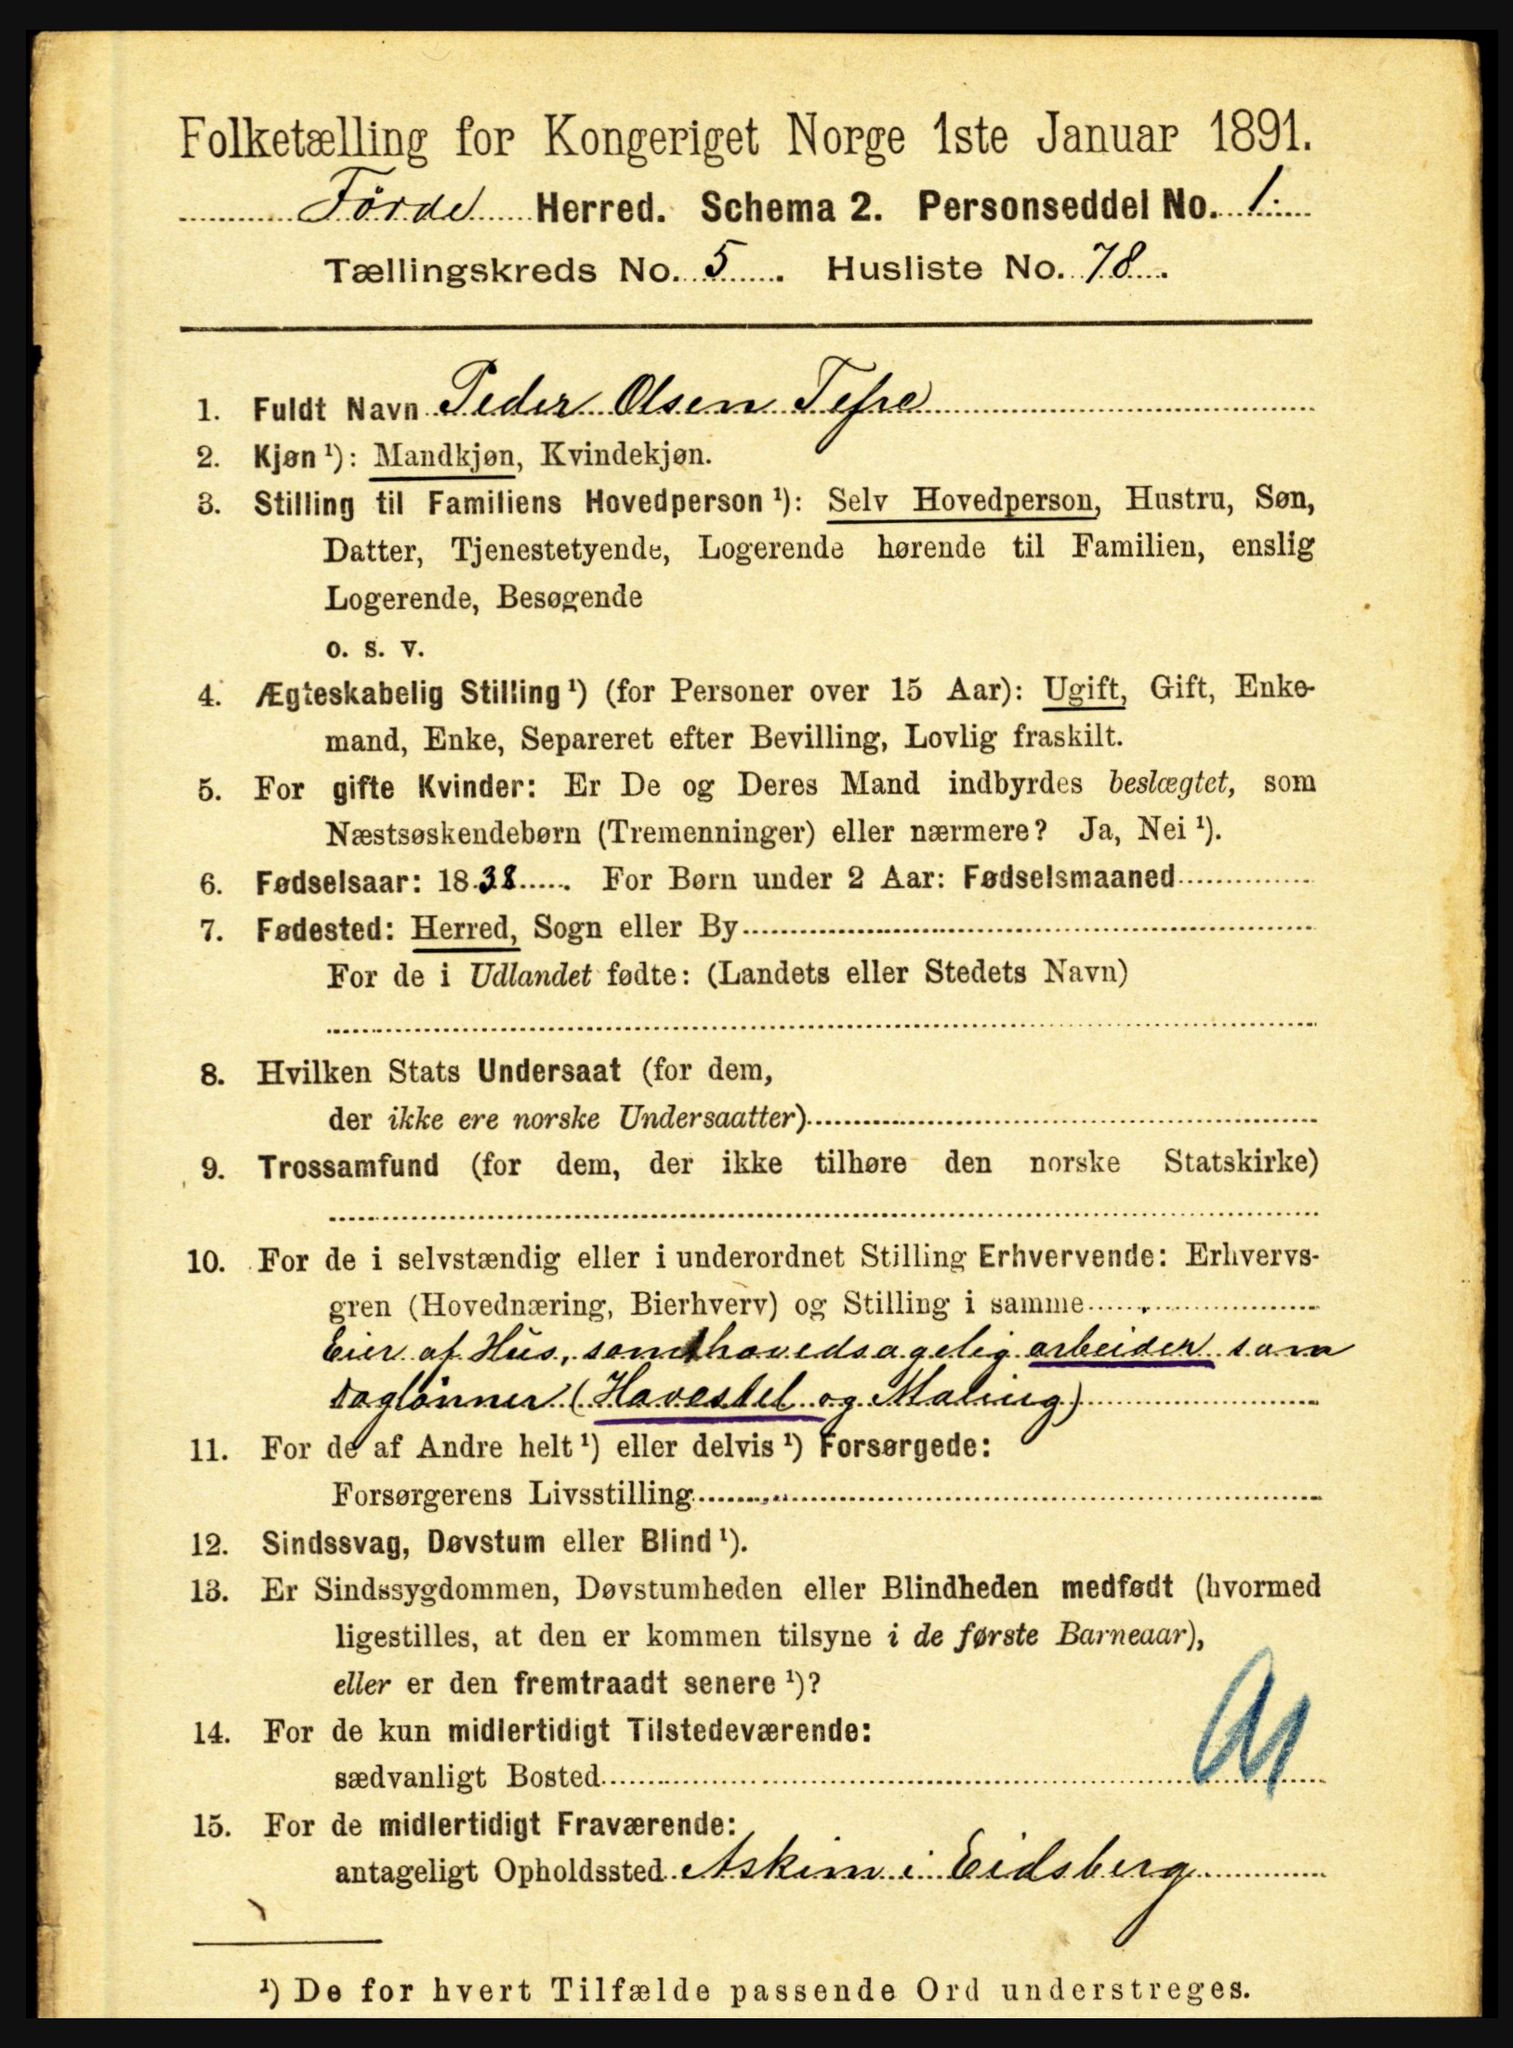 Folketælling for Kongeriget Norge 1ste Januar 1891.
Førde Herred. Schema 2. Personseddel No. 1.
Tællingskreds No. 5. Husliste No. 78.
1. Fuldt Navn Peder Olsen Tefre
2. Kjøn ¹): Mandkjøn, Kvindekjøn.
3. Stilling til Familiens Hovedperson ¹): Selv Hovedperson, Hustru, Søn,
Datter, Tjenestetyende, Logerende hørende til Familien, enslig
Logerende, Besøgende
o. s. v.
4. Ægteskabelig Stilling ¹) (for Personer over 15 Aar): Ugift, Gift, Enke-
mand, Enke, Separeret efter Bevilling, Lovlig fraskilt.
5. For gifte Kvinder: Er De og Deres Mand indbyrdes beslægtet, som
Næstsøskendebørn (Tremenninger) eller nærmere? Ja, Nei ¹).
6. Fødselsaar: 1838. For Børn under 2 Aar: Fødselsmaaned
7. Fødested: Herred, Sogn eller By
For de i Udlandet fødte: (Landets eller Stedets Navn)
8. Hvilken Stats Undersaat (for dem,
der ikke ere norske Undersaatter)
9. Trossamfund (for dem, der ikke tilhøre den norske Statskirke)
10. For de i selvstændig eller i underordnet Stilling Erhvervende: Erhvervs-
gren (Hovednæring, Bierhverv) og Stilling i samme
Eier af Hus, som hovedsagelig arbeider som
Daglönner (Havestel og Maling)
11. For de af Andre helt ¹) eller delvis ¹) Forsørgede:
Forsørgerens Livsstilling
12. Sindssvag, Døvstum eller Blind ¹).
13. Er Sindssygdommen, Døvstumheden eller Blindheden medfødt (hvormed
ligestilles, at den er kommen tilsyne i de første Barneaar),
eller er den fremtraadt senere ¹)?
14. For de kun midlertidigt Tilstedeværende:
sædvanligt Bosted
15. For de midlertidigt Fraværende:
antageligt Opholdssted Askim i Eidsberg
¹) De for hvert Tilfælde passende Ord understreges.